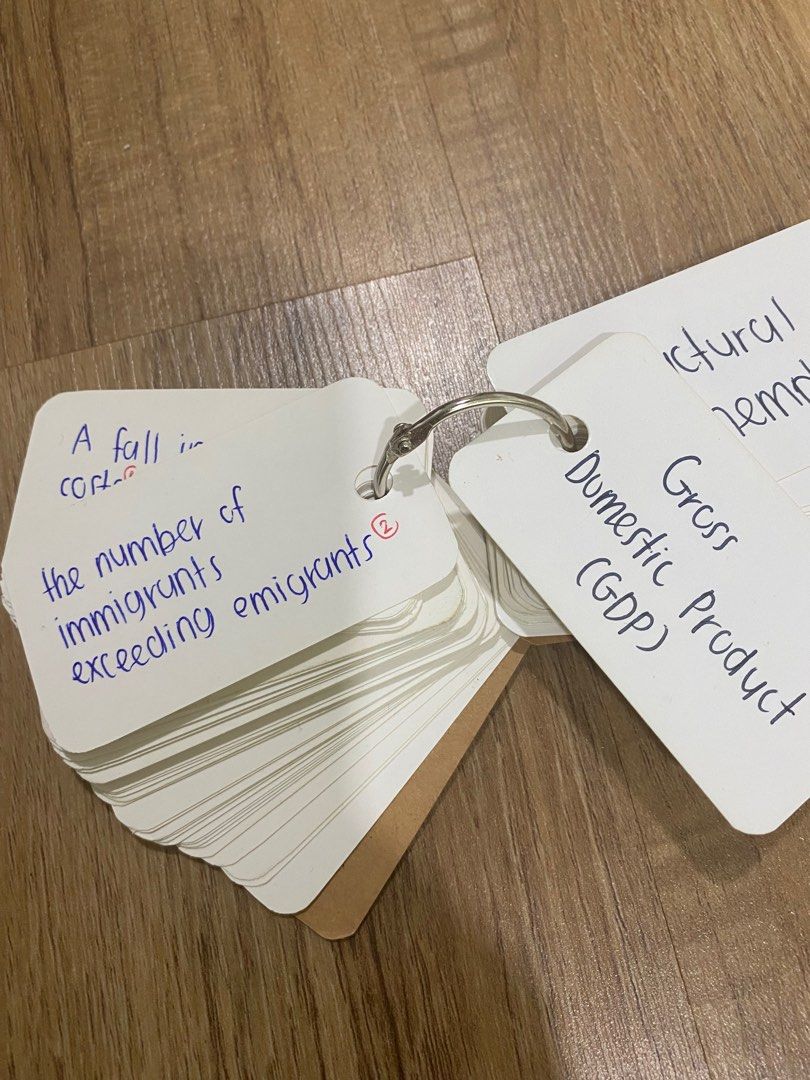 A fall in
the number of
immigrants
exceeding emigrants ②
Gross
Domestic Product
(GDP)